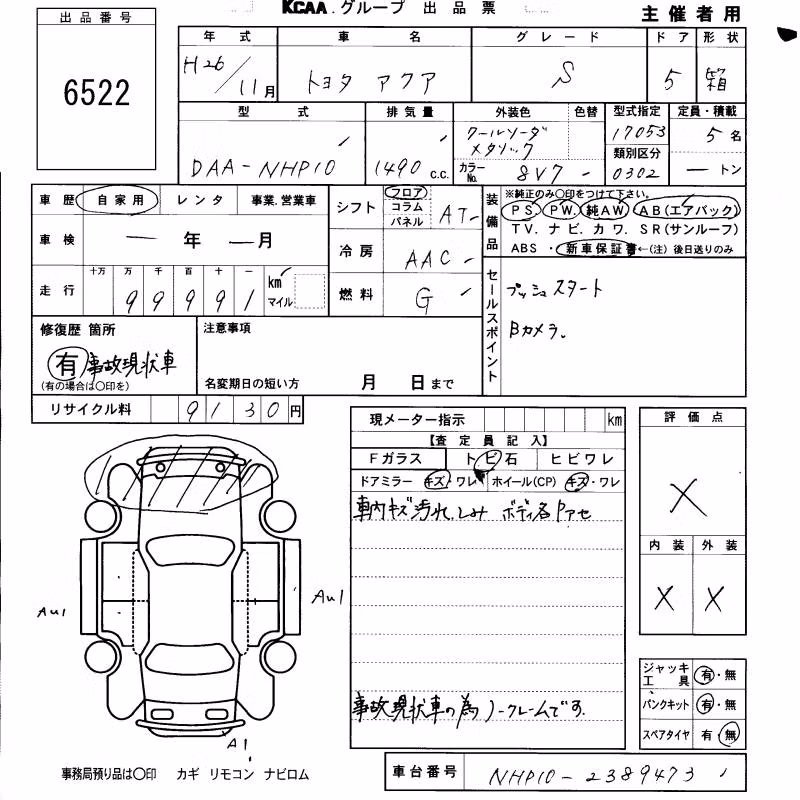 KCAA.グループ 出品票
主催者用
出品番号
6522
年式 車名 グレード ドア 形状
H26/11月 トヨタ アクア S 5 箱
型式 排気量 外装色 色替 型式指定 定員・積載
DAA-NHP10 1490c.c. クールソーダメタリック 17053 5名
カラーNo. 8V7 類別区分 0302 ートン
車歴 自家用 レンタ 事業.営業車
シフト フロア コラム パネル AT
装備品 ※純正のみ〇印をつけて下さい。
PS. PW. 純AW. AB(エアバック)
TV. ナビ. カワ. SR(サンルーフ)
ABS ・ 新車保証書←(注) 後日送りのみ
車検 ー年ー月
冷房 AAC
走行 十万 万 千 百 十 一
99991 km マイル
燃料 G
セールスポイント
プッシュスタート
Bカメラ。
修復歴 箇所
有 事故現状車
(有の場合は〇印を)
注意事項
名変期日の短い方 月 日まで
リサイクル料 9130円
現メーター指示 km
【査定員記入】
Fガラス トビ石 ヒビワレ
ドアミラー キズ・ワレ ホイール(CP) キズ・ワレ
車内キズ汚れ.しみ ボディ色アセ
事故現状車の為ノークレームです.
評価点
X
内装 外装
X X
Au1
Au1
A1
ジャッキ工具 有・無
パンクキット 有・無
スペアタイヤ 有・無
事務局預り品は〇印 カギ リモコン ナビロム
車台番号 NHP10-2389473